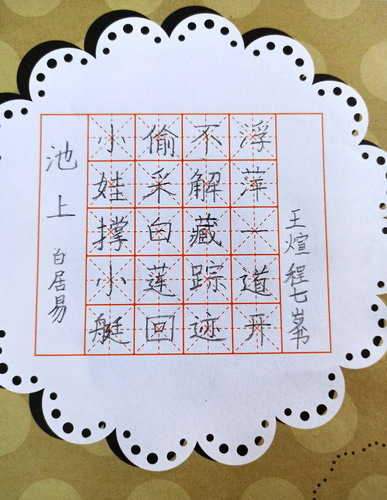 池上
白居易
小娃撑小艇
偷采白莲回
不解藏踪迹
浮萍一道开
王煊程七岁书